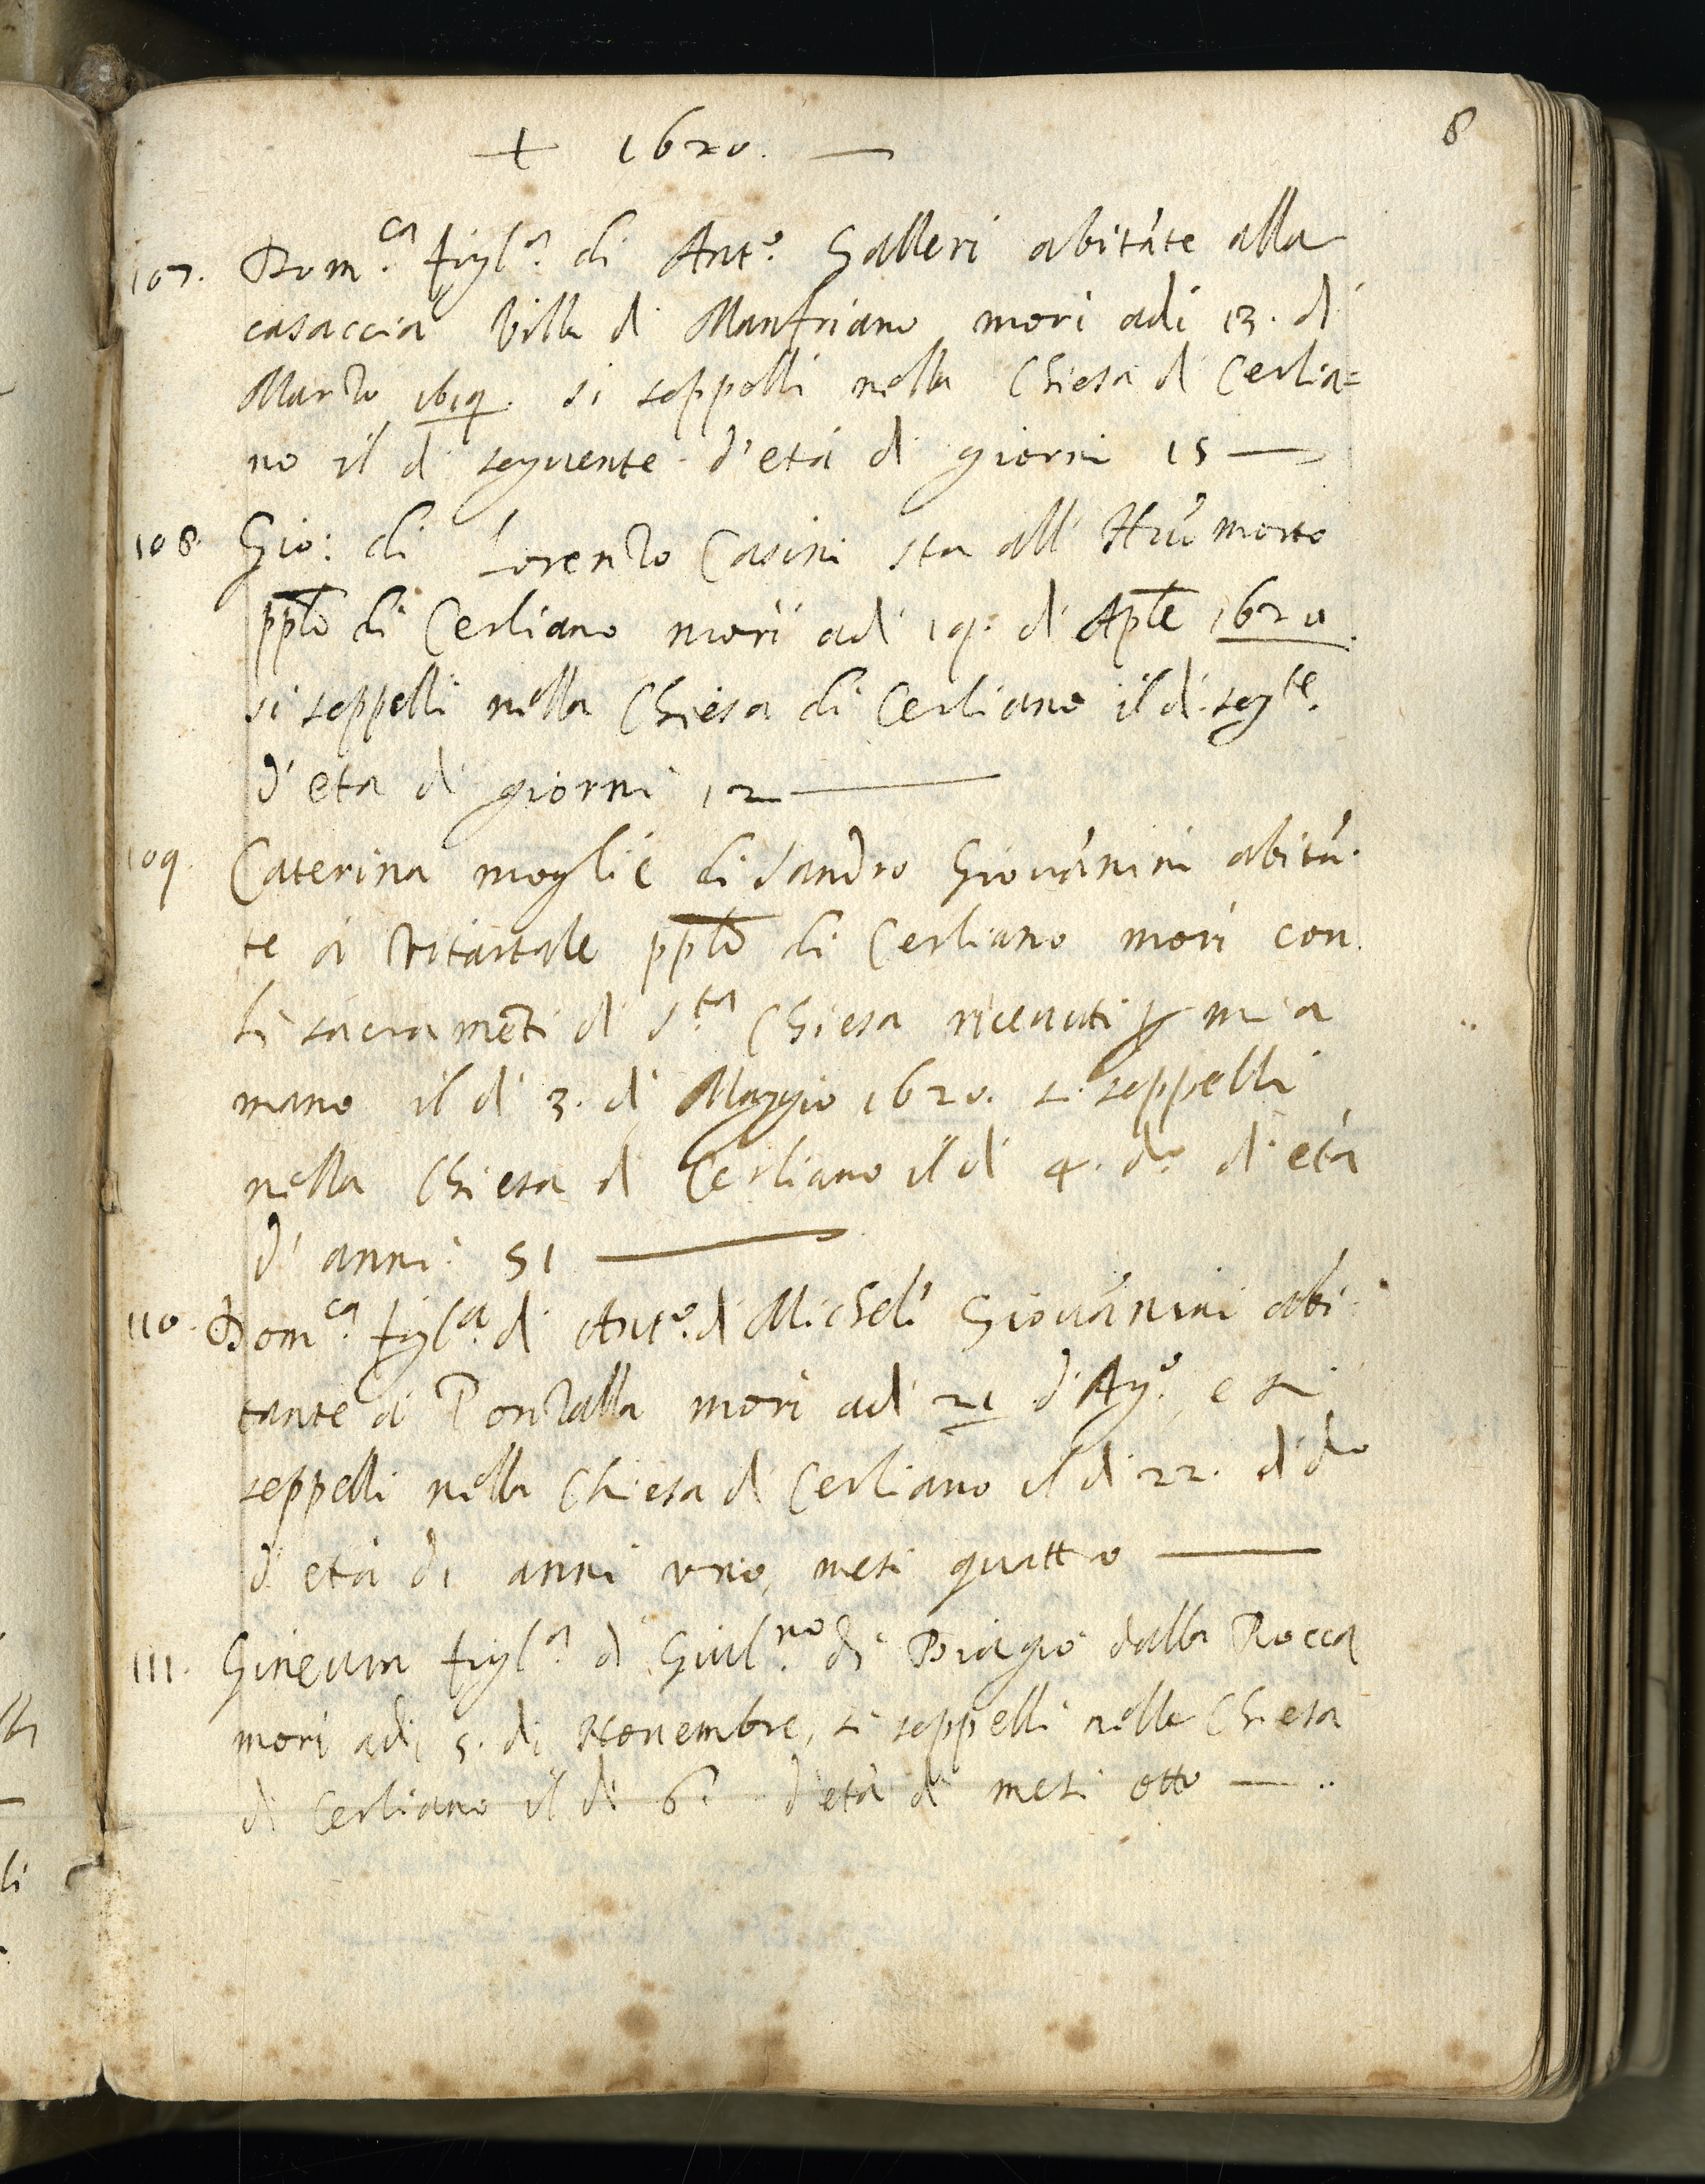 + 1620. —
8
107. Dom.ca figl.a di Ant.o Galleri abitāte alla
casaccia Villa di Manfriano morì adi 13. di
Marzo 1619. si seppellì nella Chiesa di Cerlia=
no il dì seguente d'età di giorni 15 —
108. Gio: di Lorenzo Casini sta all' Hiumorto
pplo di Cerliano morì adi 19. di Aple 1620.
si seppellì nella Chiesa di Cerliano il dì seg.te
d'età di giorni 12 —
109. Caterina moglie di Sandro Giovānini abitā-
te à pplo di Cerliano morì con
li sacramēti di S.ta Chiesa ricevuti p mia
mano il dì 3. di Maggio 1620. si seppellì
nella Chiesa di Cerliano il dì 4. d.o d'età
d'anni 51 —
110. Dom.ca figl.a di Ant.o di Michel' Giovānini abi-
tante à Ponzalla morì adi 21 d'Ag.o, e si
seppellì nella Chiesa di Cerliano il dì 22. di d.o
d'età di anni uno, mesi quattro —
111. Ginevra figl.a di Giul.no di Biagio dalla Rocca
morì adi 5. di Novembre, si seppellì nella Chiesa
di Cerliano il dì 6. d'età di mesi otto — ..